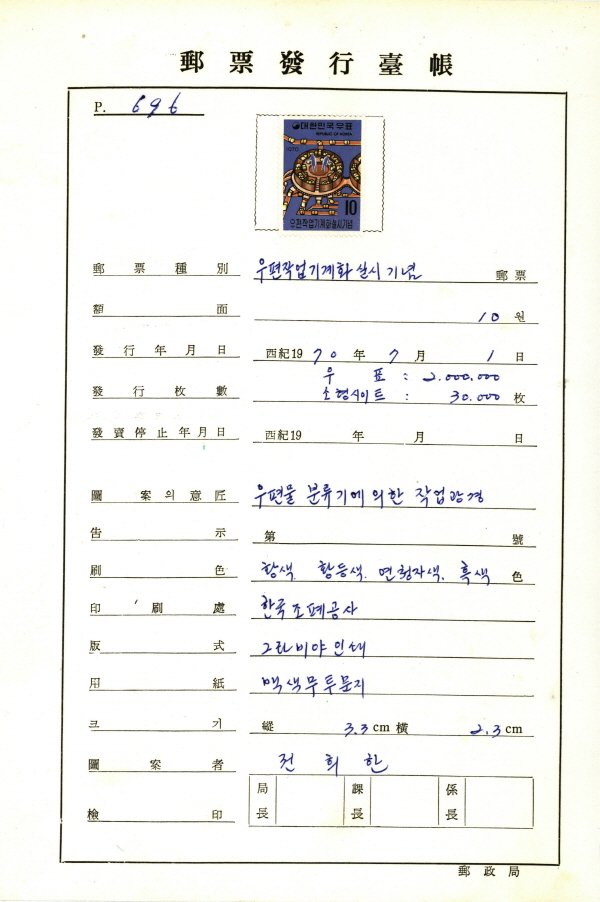 郵票發行臺帳
P. 696
대한민국우표
REPUBLIC OF KOREA
1970
10
우편작업기계화실시기념
郵票種別 우편작업기계화 실시 기념 郵票
額面 10 원
發行年月日 西紀19 70 年 7 月 1 日
發行枚數 우표 : 2.000.000
소형시이트 : 30.000 枚
發賣停止年月日 西紀19 年 月 日
圖案의意匠 우편물 분류기에 의한 작업광경
告示 第 號
刷色 황색. 황등색. 연청자색. 흑색 色
印刷處 한국조폐공사
版式 그라비아 인쇄
用紙 백색무투문지
크기 縱 3.3 cm 橫 2.3 cm
圖案者 전희한
檢印 局長 課長 係長
郵政局